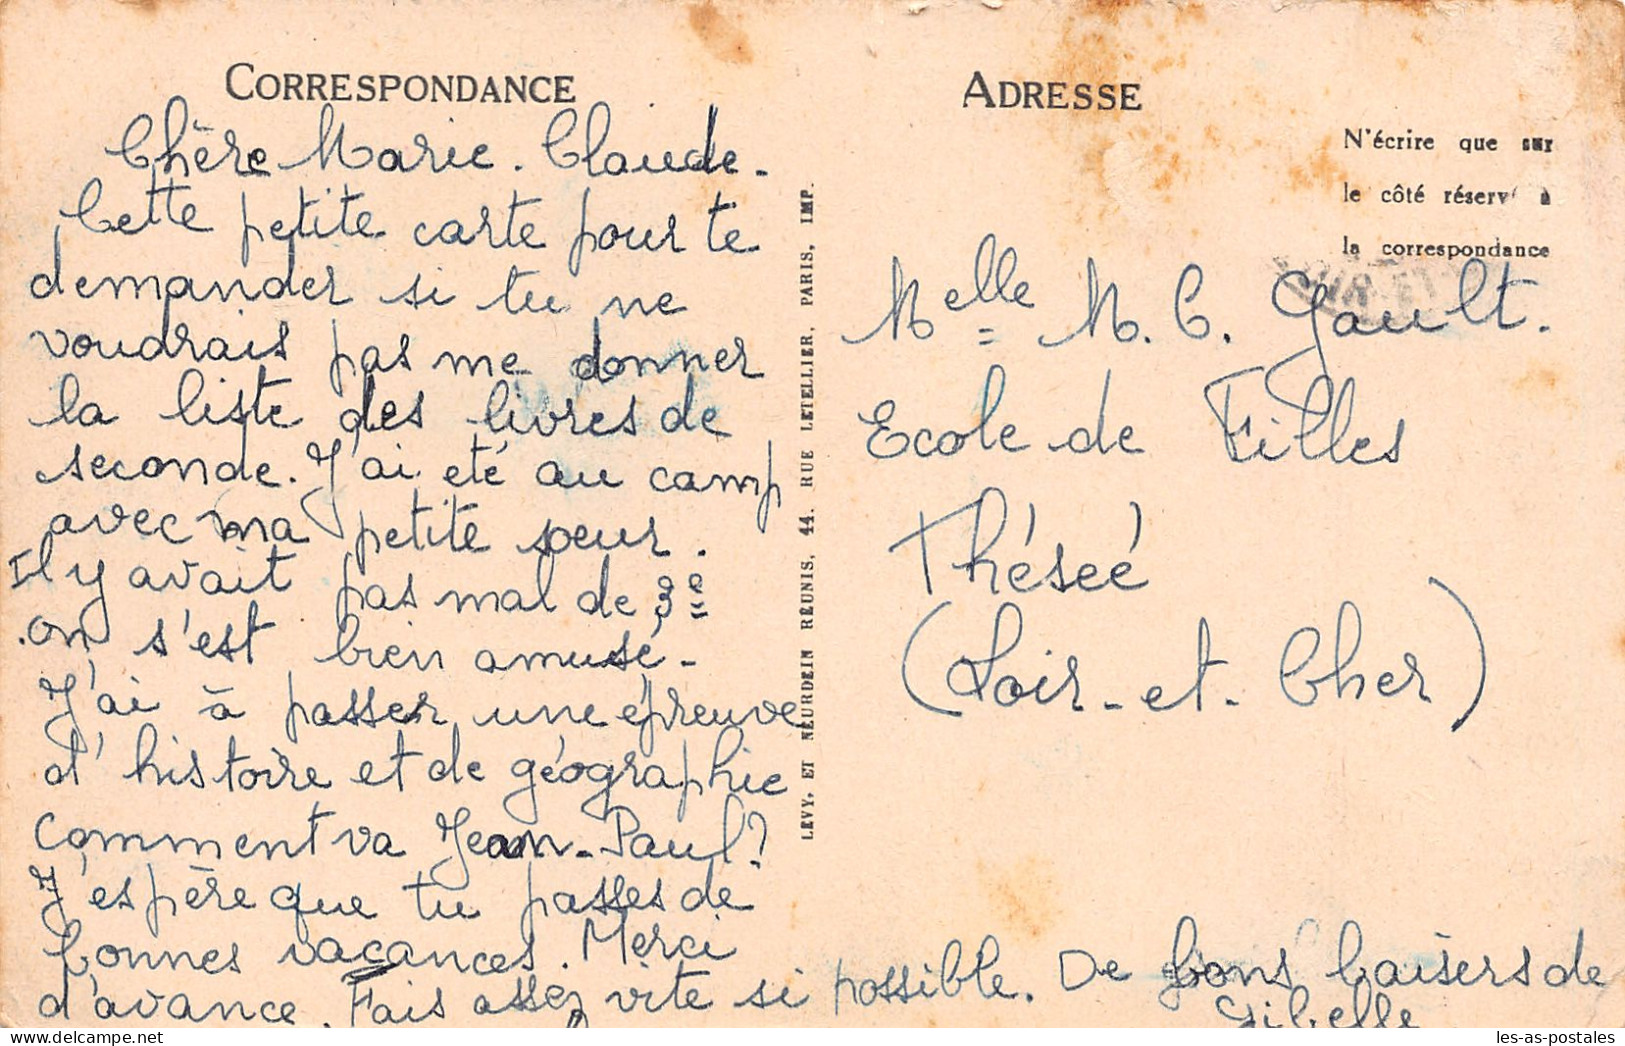 CORRESPONDANCE
Chère Marie. Claude.
Cette petite carte pour te
demander si tu ne
voudrais pas me donner
la liste des livres de
seconde. J'ai eté au camp
avec ma petite soeur.
Il y avait pas mal de 3e
on s'est bien amusé-
J'ai à passer une épreuve
d'histoire et de géographie
Comment va Jean-Paul?
J'espère que tu passes de
bonnes vacances. Merci
d'avance. Fais assez vite si possible. De bons baisers de
LEVY, ET NEURDEIN RÉUNIS, 44, RUE LETELLIER, PARIS, IMP.
ADRESSE
N'écrire que sur
le côté réservé à
la correspondance
LOIR-ET
Melle M. C. Gault.
Ecole de Filles
Théseé
(Loir-et-Cher)
les-as-postales